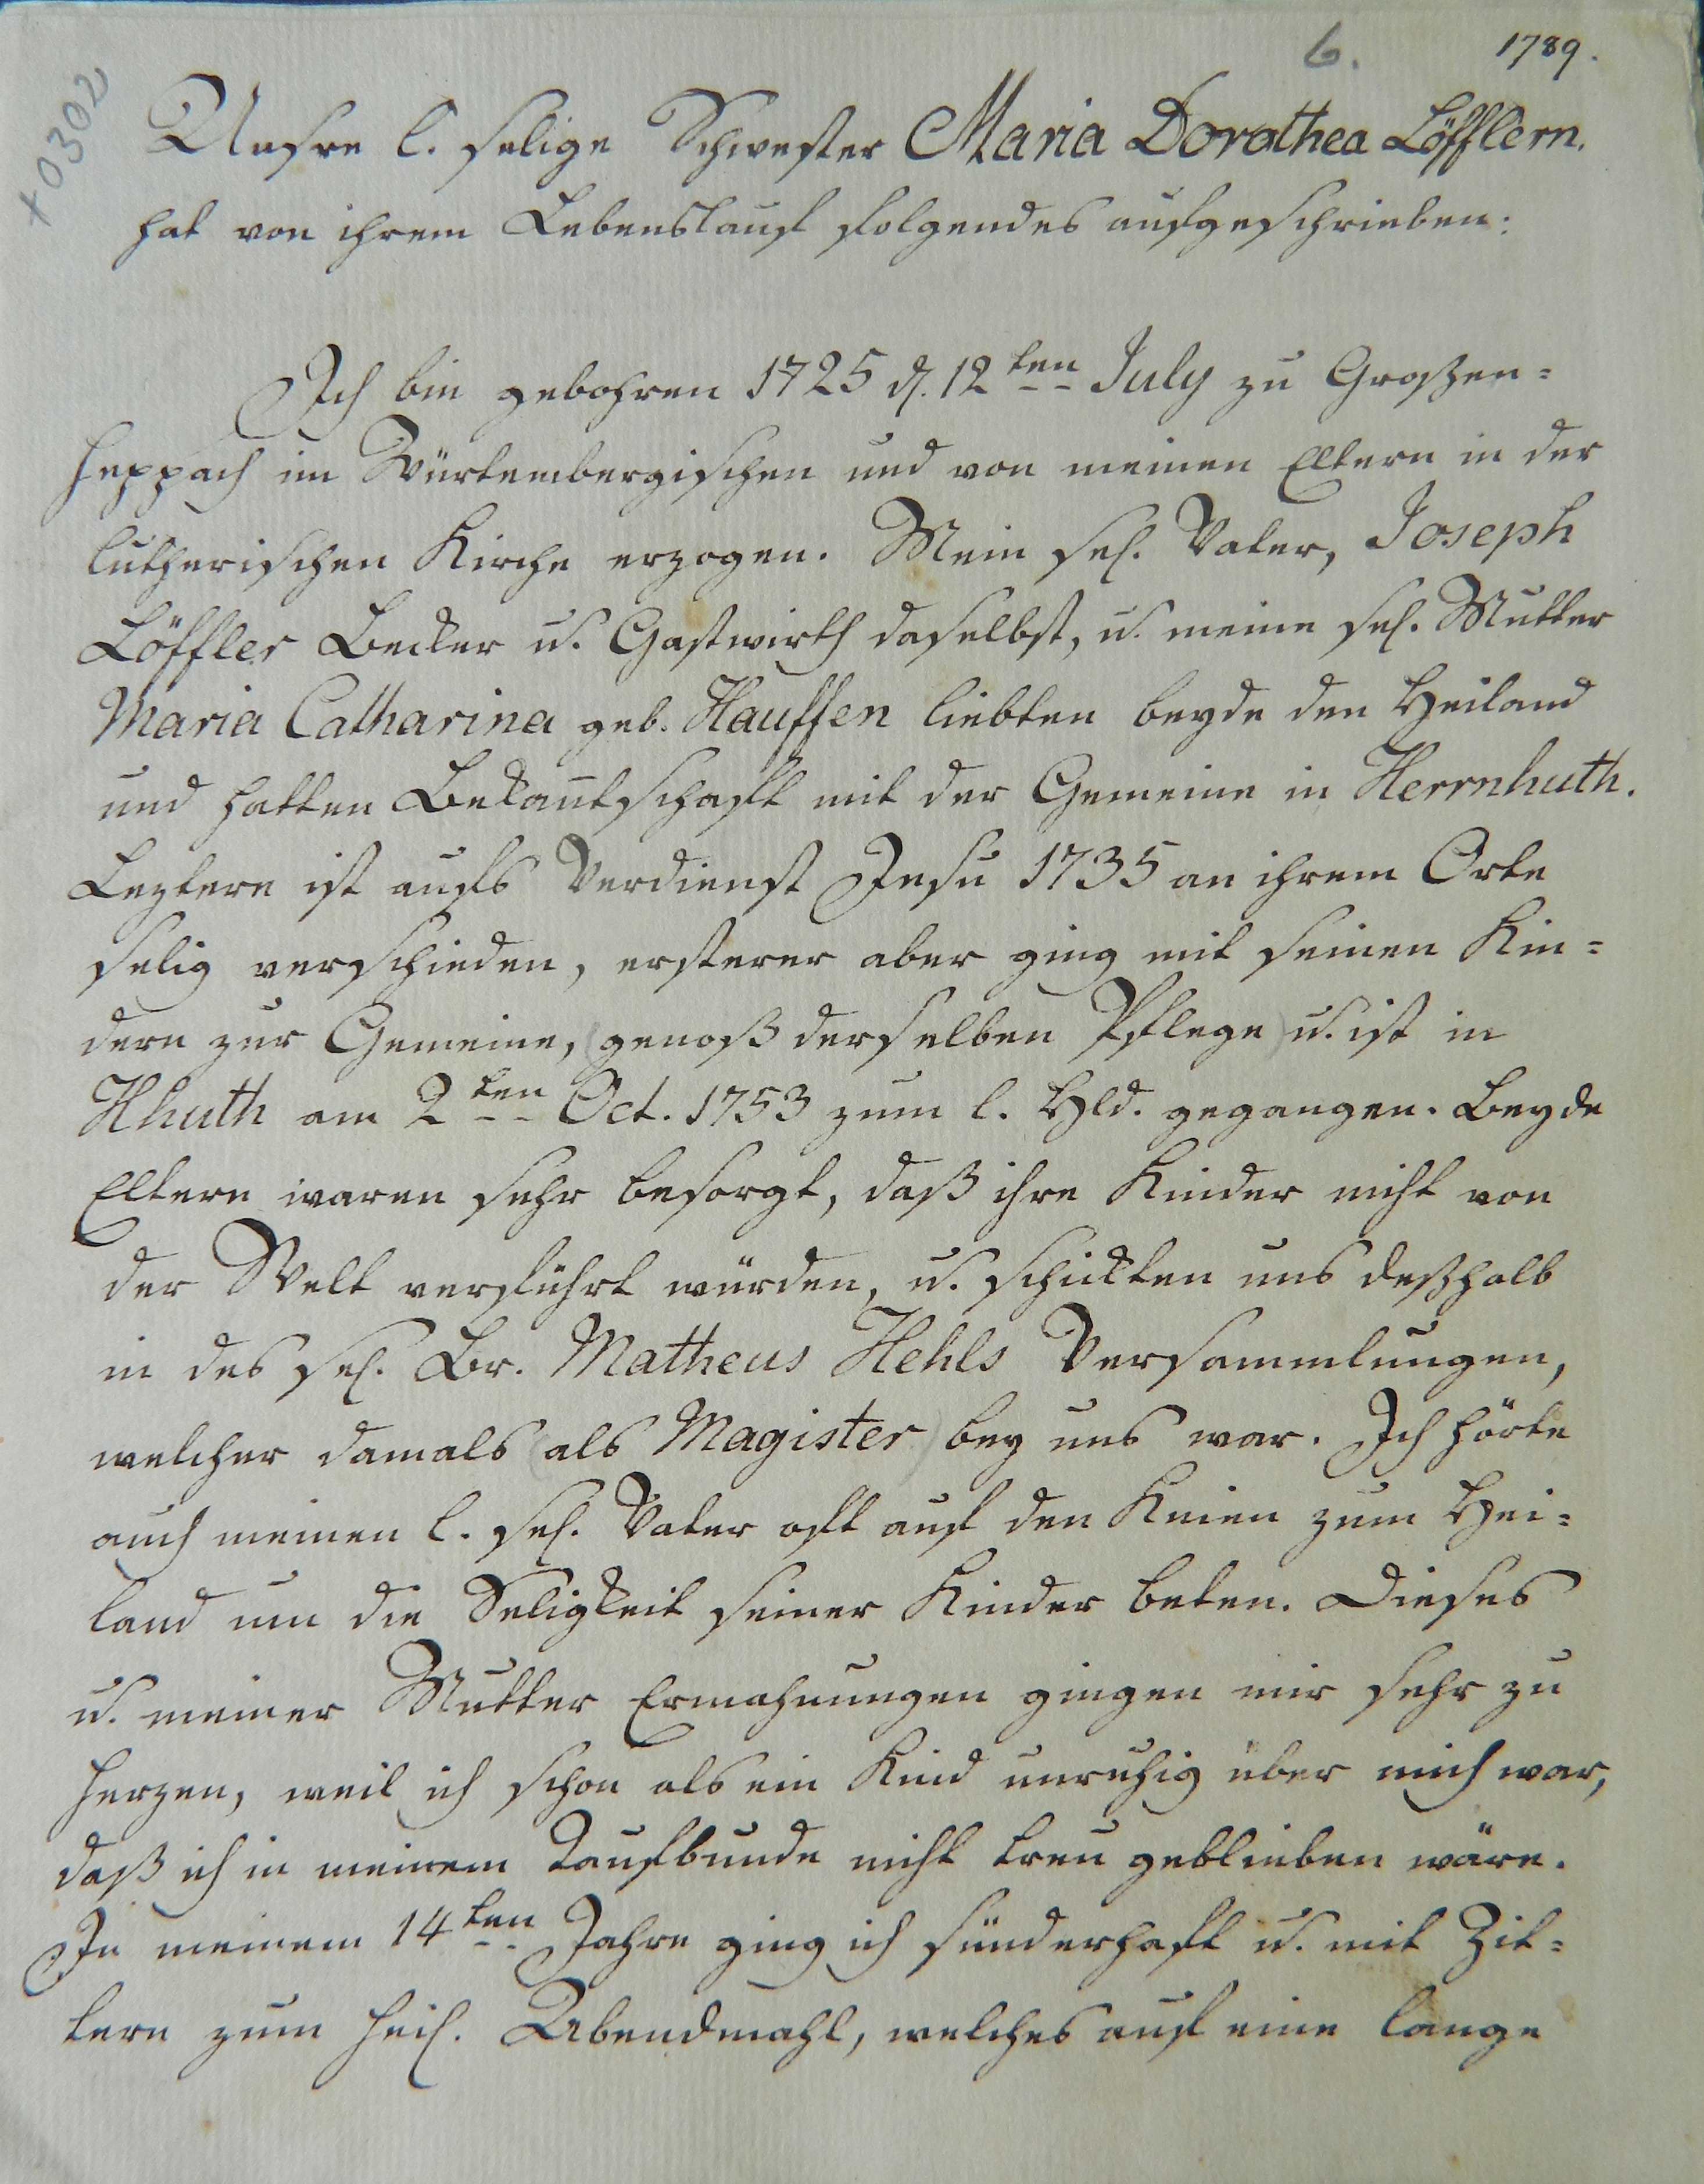 6. 1789.
+ 0302
Unsre l. selige Schwester Maria Dorothea Löfflern.
hat von ihrem Lebenslauf folgendes aufgeschrieben:
Ich bin gebohren 1725 d. 12ten July zu Großen=
heppach im Würtembergischen und von meinen Eltern in der
lutherischen Kirche erzogen. Mein sel. Vater, Joseph
Löffler Becker u. Gastwirth daselbst, u. meine sel. Mutter
Maria Catharina geb. Hauffen liebten beyde den Heiland
und hatten Bekantschafft mit der Gemeine in Herrnhuth.
Leztere ist aufs Verdienst Jesu 1735 an ihrem Orte
selig verschieden, ersterer aber ging mit seinen Kin=
dern zur Gemeine, (genoß derselben Pflege) u. ist in
Hhuth am 2ten Oct. 1753 zum l. Hld. gegangen. Beyde
Eltern waren sehr besorgt, daß ihre Kinder nicht von
der Welt verführt würden, u. schickten uns deßhalb
in des sel. Br. Matheus Hehls Versammlungen,
welcher damals (als Magister) bey uns war. Ich hörte
auch meinen l. sel. Vater oft auf den Knien zum Hei=
land um die Seligkeit seiner Kinder beten. Dieses
u. meiner Mutter Ermahnungen gingen mir sehr zu
Herzen, weil ich schon als ein Kind unruhig über mich war,
daß ich in meinem Taufbunde nicht treu geblieben wäre.
In meinem 14ten Jahre ging ich sünderhaft u. mit Zit=
tern zum heil. Abendmahl, welches auf eine lange